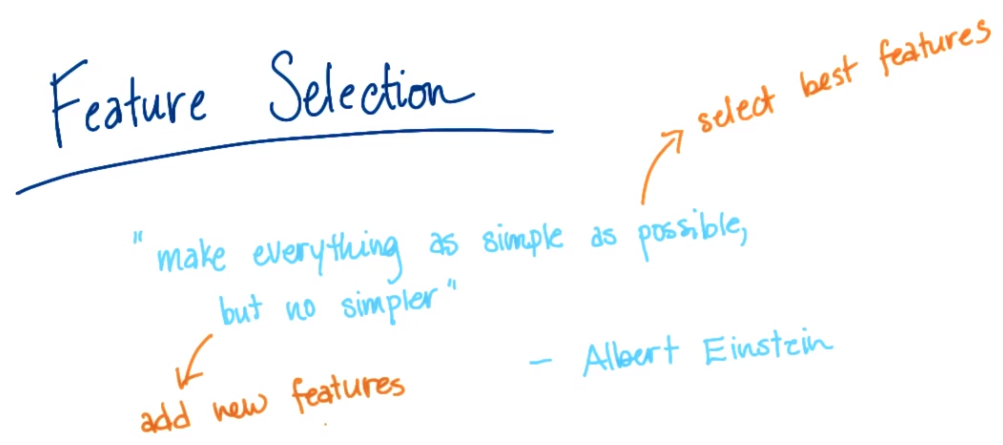 Feature Selection
select best features
"make everything as simple as possible,
but no simpler"
- Albert Einstein
add new features